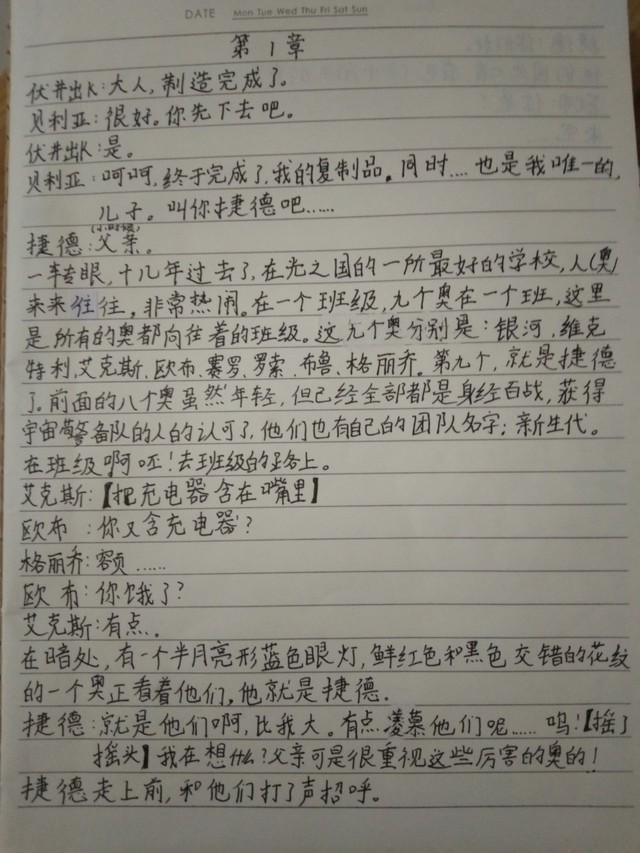 DATE Mon Tue Wed Thu Fri Sat Sun
第1章
伏井出K:大人,制造完成了。
贝利亚:很好。你先下去吧。
伏井出K:是。
贝利亚:呵呵,终于完成了,我的复制品。同时....也是我唯一的,
儿子。叫你捷德吧......
(小时候)
捷德:父亲。
一转眼,十几年过去了,在光之国的一所最好的学校,人(奥)
来来往往,非常热闹。在一个班级,九个奥在一个班,这里
是所有的奥都向往着的班级。这九个奥分别是:银河,维克
特利,艾克斯,欧布,赛罗,罗索,布鲁,格丽乔。第九个,就是捷德
了。前面的八个奥虽然年轻,但已经全部都是身经百战,获得
宇宙警备队的人的认可了,他们也有自己的团队名字:新生代。
在班级啊呸!去班级的路上。
艾克斯:【把充电器含在嘴里】
欧布:你又含充电器?
格丽乔:额......
欧布:你饿了?
艾克斯:有点。
在暗处,有一个半月亮形蓝色眼灯,鲜红色和黑色交错的花纹
的一个奥正看着他们,他就是捷德.
捷德:就是他们啊,比我大。有点羡慕他们呢......呜!【摇了
摇头】我在想什么?父亲可是很重视这些厉害的奥的!
捷德走上前,和他们打了声招呼。